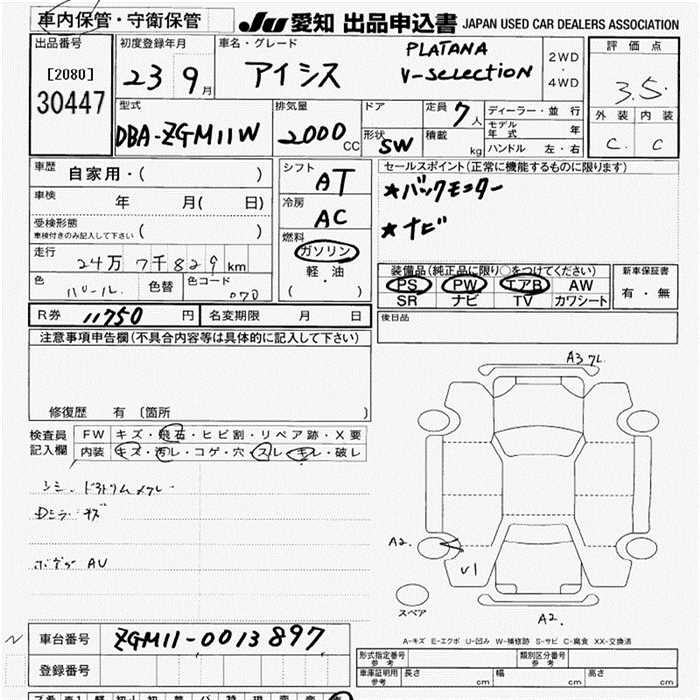 車内保管・守衛保管
JU 愛知 出品申込書 JAPAN USED CAR DEALERS ASSOCIATION
出品番号
[2080]
30447
初度登録年月
23 9月
車名・グレード
アイシス PLATANA
V-SELECTION
2WD
・
4WD
評価点
3.5
外装 内装
C. C
型式
DBA-ZGM11W
排気量
2000 CC
ドア
形状 SW
定員 7人
積載 kg
ディーラー・並行
モデル年式 年
ハンドル 左・右
車歴 自家用・( )
車検 年 月( 日)
受検形態
車検付きのみ記入して下さい ( )
走行 24万7千829km
色 パール. 色替 色コード 070
シフト AT
冷房 AC
燃料
ガソリン
軽・油
( )
セールスポイント(正常に機能するものに限ります)
★バックモニター
★ナビ
装備品(純正品に限り○をつけてください)
PS PW エアB AW
SR ナビ TV カワシート
新車保証書
有・無
R券 11750円 名変期限 月 日
後日品
注意事項申告欄(不具合内容等は具体的に記入して下さい)
修復歴 有 〔箇所 〕
検査員
記入欄
FW キズ・飛石・ヒビ割・リペア跡・X要
内装 キズ・汚レ・コゲ・穴・スレ・キレ・破レ
Dミラーキズ
AU
A2.
V1
A2.
スペア
A-キズ E-エクボ U-凹み W-補修跡 S-サビ C-腐食 XX-交換済
車台番号 ZGM11-0013897
登録番号
形式指定番号
参考
類別区分番号
参考
車庫証明用
参考
長さ cm 幅 cm 高さ cm